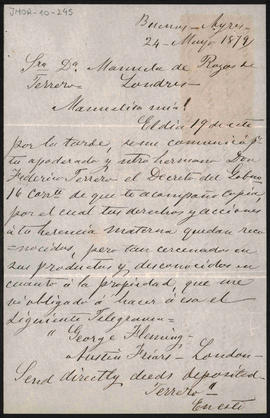 JMOR-10-245
Buenos-Ayres-
24-Mayo 1879
Sra Da. Manuela de Rozas de
Terrero- Londres-
Manuelita mia!
El dia 19 de este
por la tarde, se me comunicó pr.
tu apoderado y ntro hermano Don
Federico Terrero el Decreto del Gobno
16 Corrte de que te acompaño copia,
por el cual tus derechos y acciones
á la herencia materna quedan reco-
nocidos, pero tan cercenados en
sus productos y desconocidos en
cuanto á la propiedad, que me
ví obligado á hacer á esa el
siguiente Telegrama-
"George Fleming-
Austin Friars- London-
Send directly deeds deposited-
Terrero-"
En este